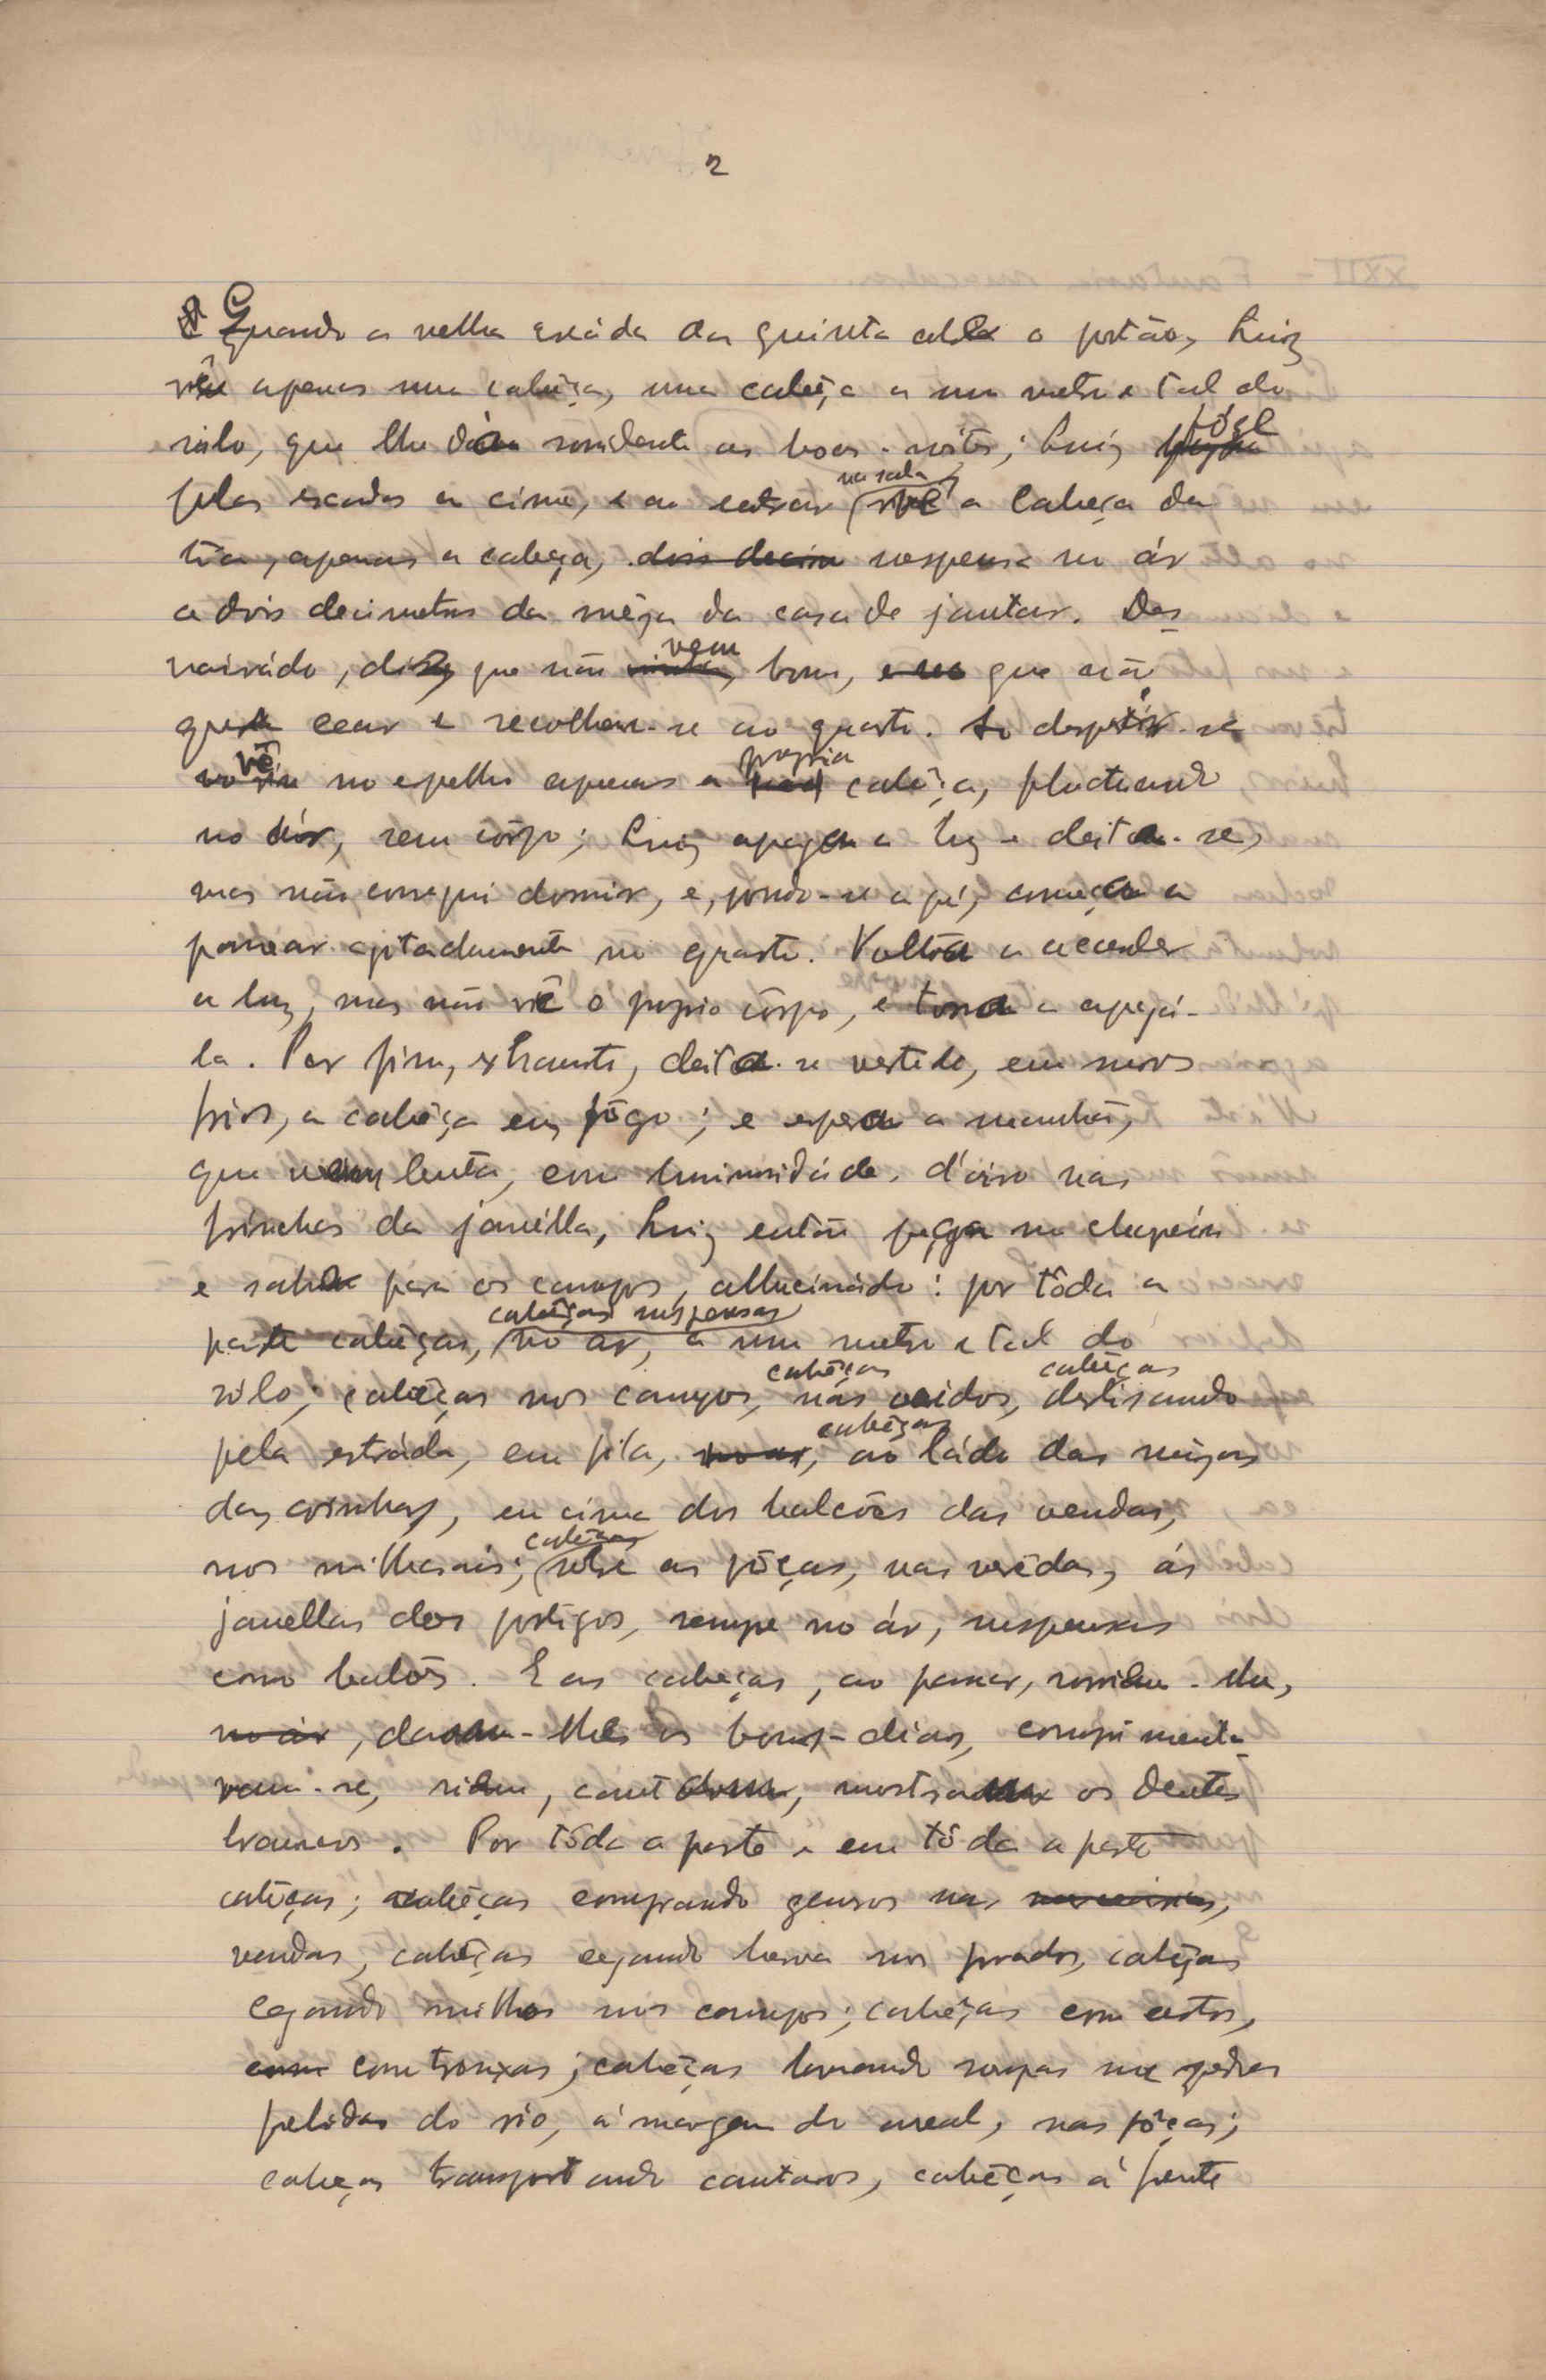 2
Quando a velha criáda da quinta abre o portão, Luiz
vê apenas uma cabêça, uma cabêça a um metro e tal do
sólo, que lhe dá sorridente as boas-noites; Luiz fóge
pelas escadas a cima, e ao entrar na sala vê a cabeça da
tia, apenas a cabeça, suspensa no ár
a dois decimetros da mêza da casa de jantar. Des
vairádo, diz que não vem bom, que não
quer cear e recolhe-se ao quarto. Ao despir-se
vê no espelho apenas a propria cabêça, fluctuando
no ár, sem côrpo; Luiz apaga a luz e deita-se,
mas não consegue dormir, e, pondo-se a pé, começa a
passear agitadamente no quarto. Volta a accender
a luz, mas não vê o proprio côrpo, e torna a apagá-
la. Por fim, exhausto, deita-se vestido, em suores
frios, a cabêça em fôgo; e espera a manhã,
que vem lenta, com luminosidáde d'oiro nas
frinchas da janélla, Luiz então péga no chapéu
e sahe para os campos, allucinádo: por tôda a
parte cabêças, cabêças suspensas no ar, a um metro e tal do
sólo; cabêças nos campos, cabêças nos eidos, cabêças deslisando
pela estráda, em fila, cabêças ao ládo das mêzas
das cosinhas, em cima dos balcões das vendas,
nos milharais; cabêças sobre as pôças, nas verêdas, ás
janellas dos postigos, sempre no ár, suspensas
como balões. E as cabeças, ao passar, sorriem-lhe,
dam-lhe os bons-dias, comprimenta
vam-se, riem, cantam, mostram os dentes
brancos. Por tôda a parte e em tôda a parte
cabêças; cabêças comprando generos nas
vendas, cabêças cegando herva nos prados, cabêças
cegando milhos nos campos; cabêças com cestos,
com trouxas; cabêças lavando roupas nas pedras
polidas do rio, á margem do areal, nas pôças;
cabeças transportando cantaros, cabêças á frente